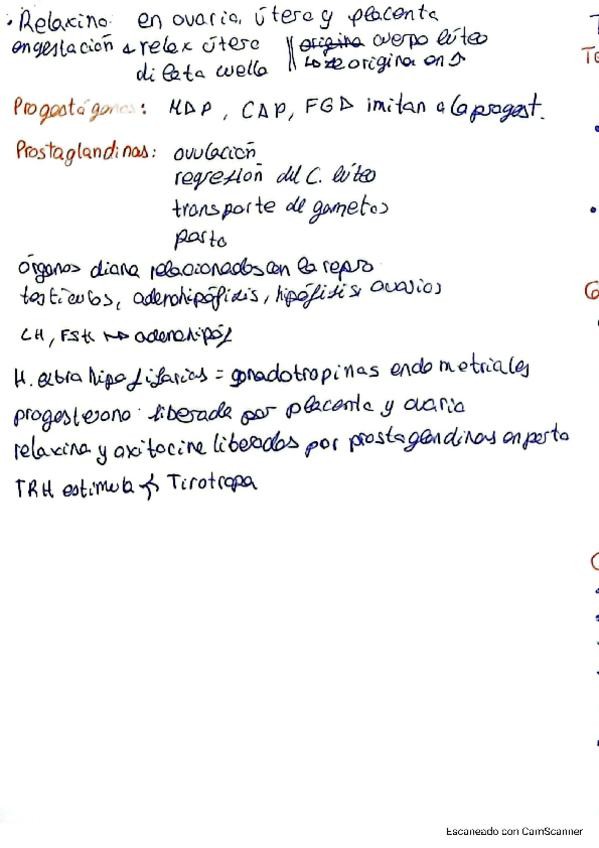 · Relaxina: en ovario, útero y placenta
en gestación relax útero || origina cuerpo lúteo
dilata cuello || lo origina en
Progestágenos: MAP, CAP, FGA imitan a la progest.
Prostaglandinas: ovulación
regresion del C. lúteo
transporte de gametos
parto
órganos diana relacionados con la repro
testiculos, adenohipófisis, hipófisis, ovarios
LH, FSH → adenohipóf
H. extrahipofisarias = gonadotropinas endometriales
progesterona liberada por placenta y ovario
relaxina y oxitocina liberadas por prostaglandinas en parto
TRH estimula Tirotropa
Escaneado con CamScanner